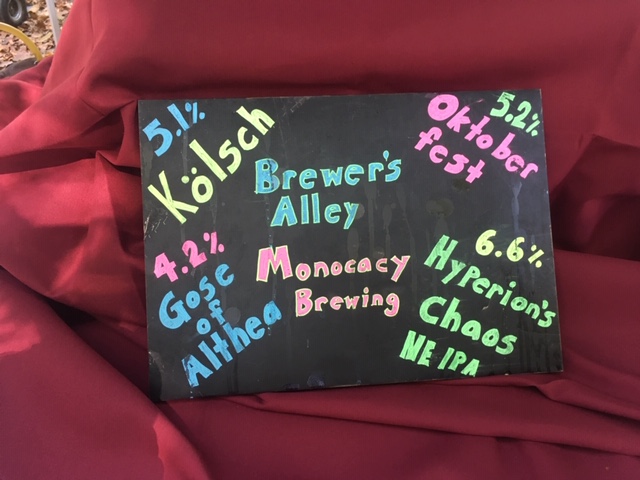 5.1%
Kölsch
5.2%
Oktober
fest
Brewer's
Alley
Monocacy
Brewing
4.2%
Gose
of
Althea
6.6%
Hyperion's
Chaos
NE IPA